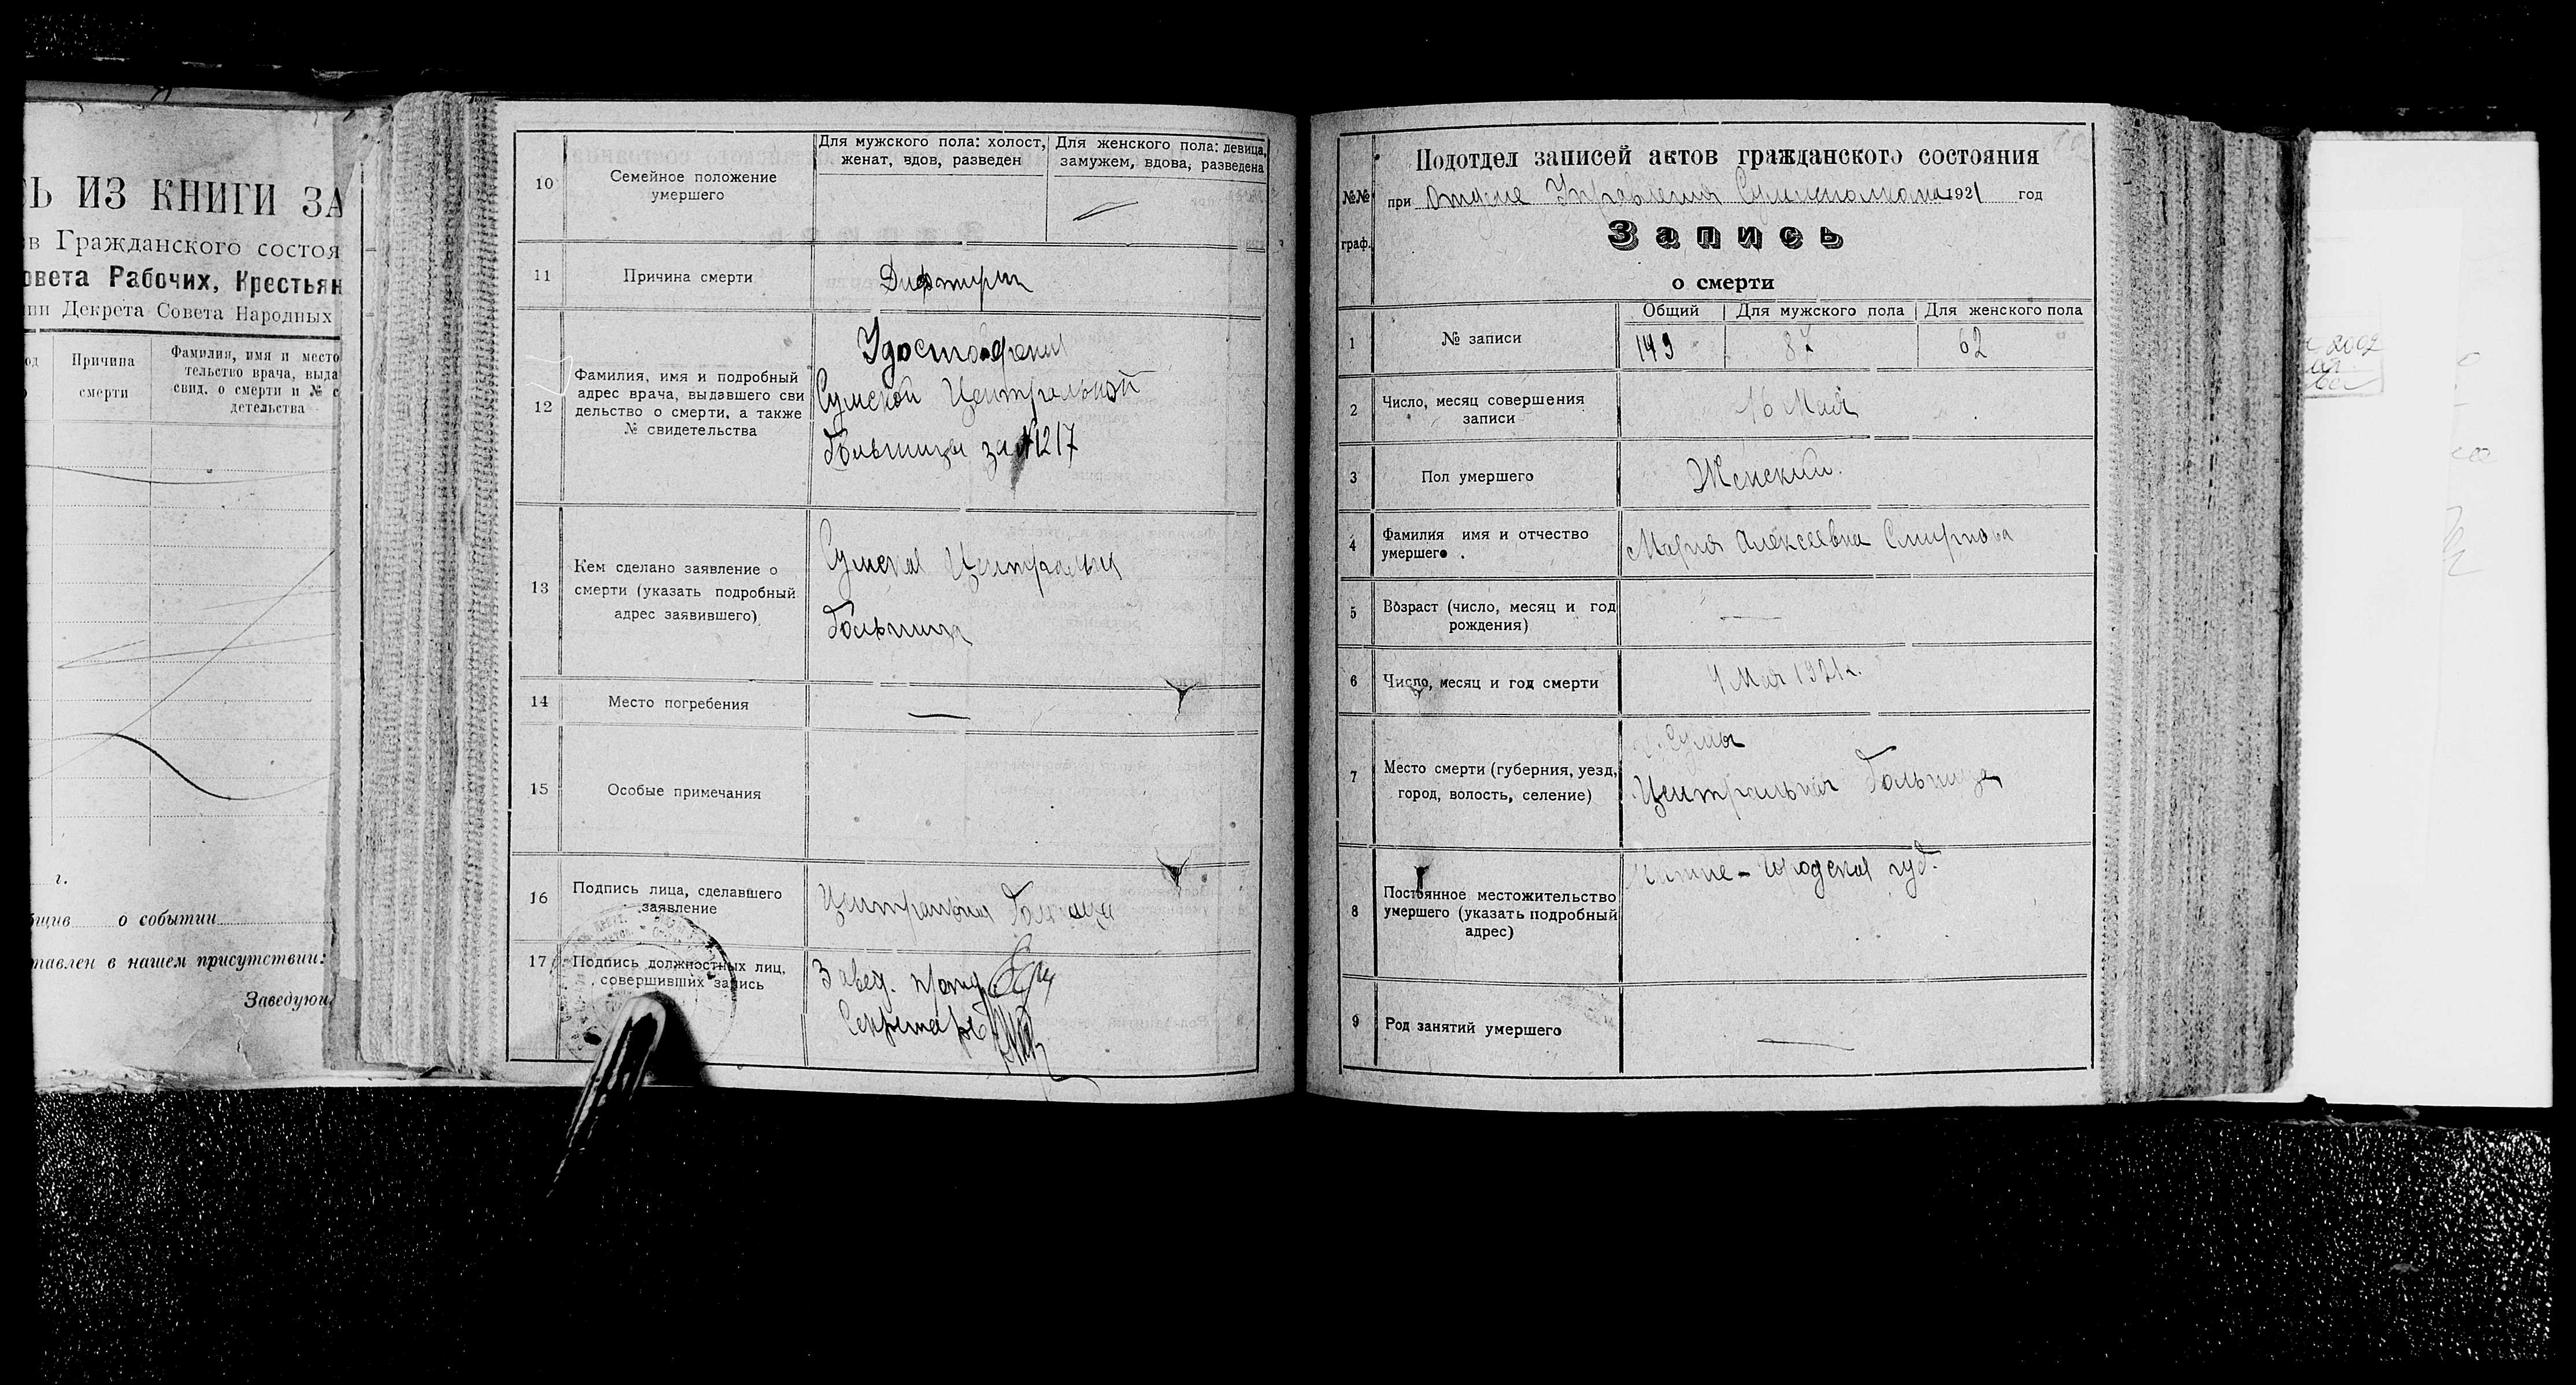 Ь ИЗ КНИГИ ЗА
в Гражданского состоя
овета Рабочих, Крестьян
ии Декрета Совета Народных
од
Причина
смерти
Фамилия, имя и место
тельство врача, выда
свид. о смерти и № с
детельства
г.
бщив о событии
тавлен в нашем присутствии:
Заведую
10
Семейное положение
умершего
Для мужского пола: холост,
женат, вдов, разведен
Для женского пола: девица,
замужем, вдова, разведена
11
Причина смерти
Дифтерит
12
Фамилия, имя и подробный
адрес врача, выдавшего сви
дельство о смерти, а также
№ свидетельства
Удостоверения
Сумской Центральной
больницы за №1217
13
Кем сделано заявление о
смерти (указать подробный
адрес заявившего)
Сумская Центральная
больница
14
Место погребения
—
15
Особые примечания
16
Подпись лица, сделавшего
заявление
Центральная больница
17
Подпись должностных лиц,
совершивших запись
Завед.
Секретарь
Подотдел записей актов гражданского состояния
№№
граф.
при Отделе Управления Сумисполкома 1921 год
Запись
о смерти
1
№ записи
Общий
Для мужского пола
Для женского пола
149
87
62
2
Число, месяц совершения
записи
16 Мая
3
Пол умершего
Женский.
4
Фамилия имя и отчество
умершего .
Мария Алексеевна Смирнова
5
Возраст (число, месяц и год
рождения)
—
6
Число, месяц и год смерти
4 Мая 1921 г.
7
Место смерти (губерния, уезд,
город, волость, селение)
г. Сумы
Центральная больница
8
Постоянное местожительство
умершего (указать подробный
адрес)
городская губ.
9
Род занятий умершего
—
2002